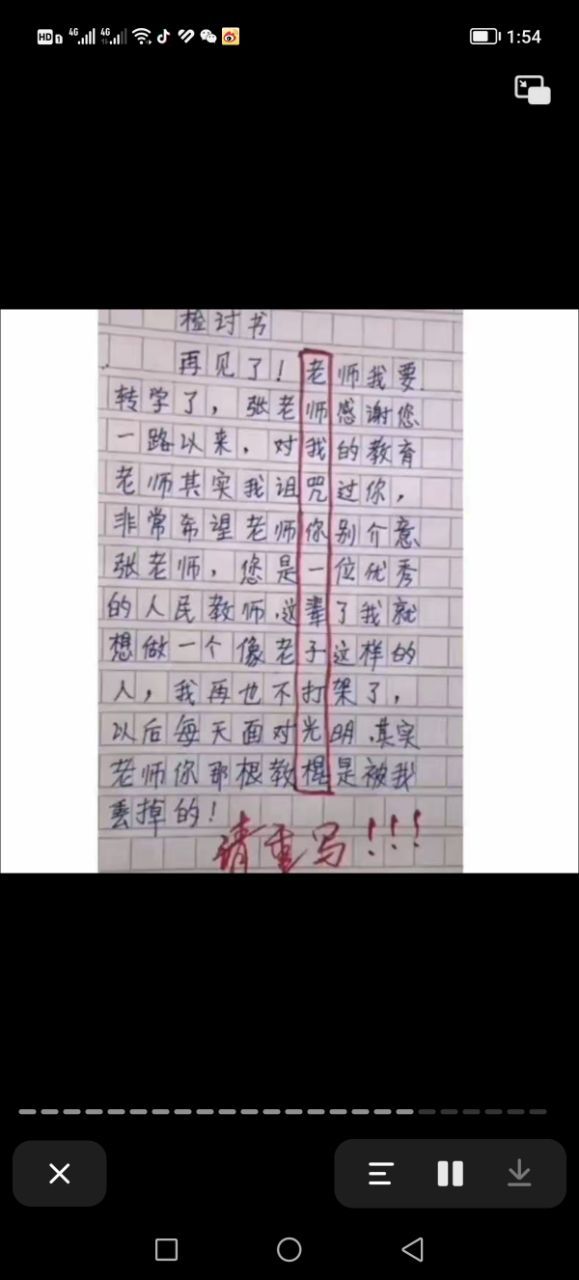 HD 1 4G 4G 1:54
检讨书
再见了！老师我要
转学了，张老师感谢您
一路以来，对我的教育
老师其实我诅咒过你，
非常希望老师你别介意
张老师，您是一位优秀
的人民教师.这辈了我就
想做一个像老子这样的
人，我再也不打架了，
以后每天面对光明.其实
老师你那根教棍是被我
丢掉的！
请重写！！！